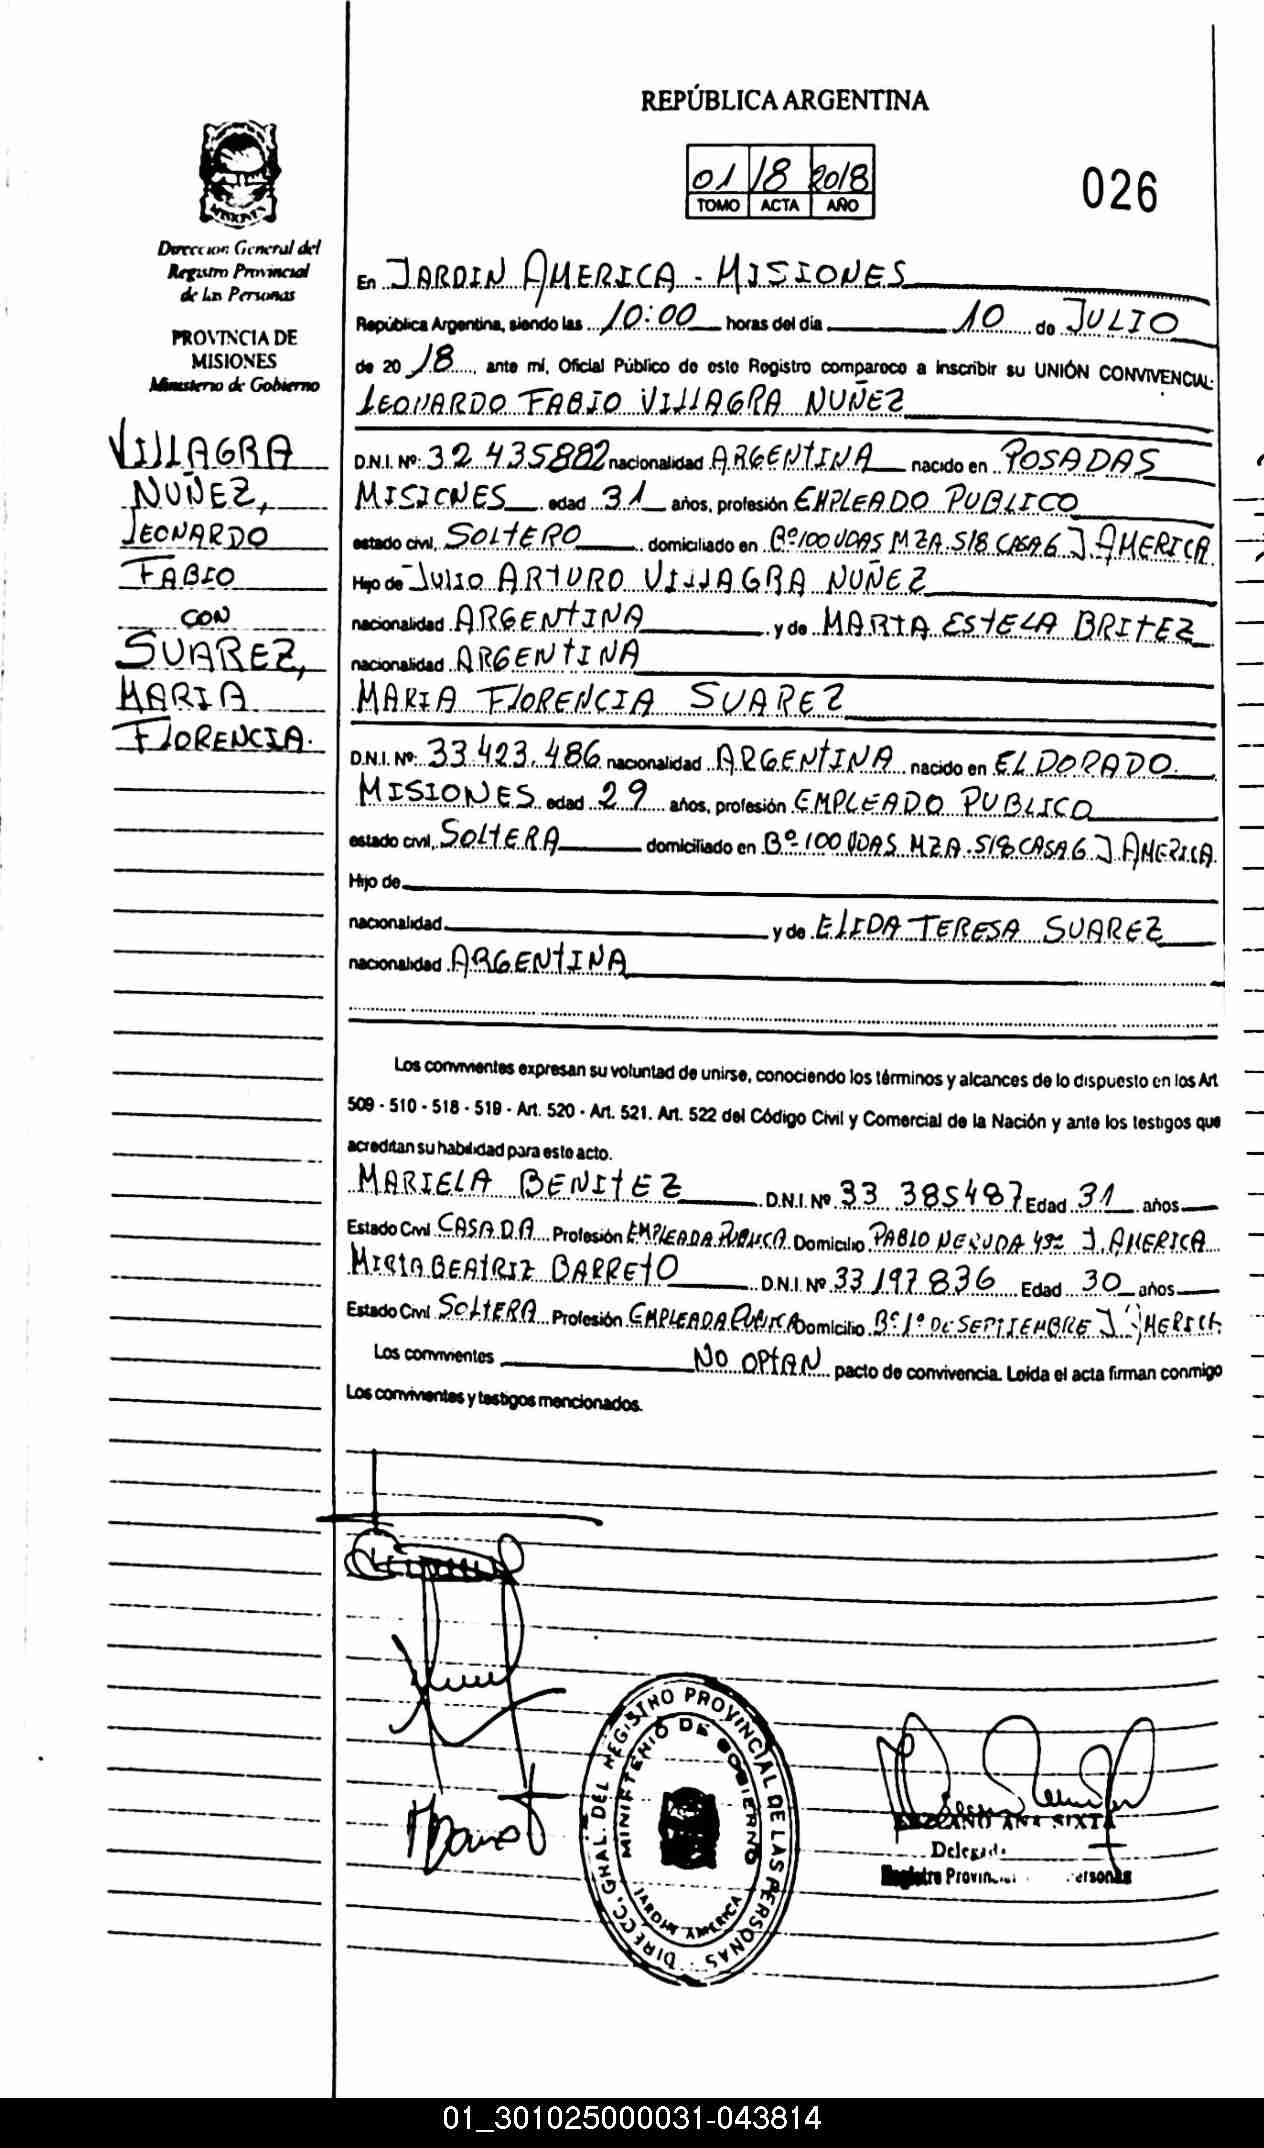 REPÚBLICA ARGENTINA
01 18 2018
TOMO ACTA AÑO
026
Dirección General del
Registro Provincial
de las Personas
PROVINCIA DE
MISIONES
Ministerio de Gobierno
VILLAGRA
NUÑEZ,
LEONARDO
FABIO
CON
SUAREZ,
MARIA
FLORENCIA.
En JARDIN AMERICA - MISIONES
República Argentina, siendo las 10:00 horas del día 10 de JULIO
de 2018, ante mí, Oficial Público de este Registro comparece a inscribir su UNIÓN CONVIVENCIAL:
LEONARDO FABIO VILLAGRA NUÑEZ
D.N.I. Nº: 32 435882 nacionalidad ARGENTINA nacido en POSADAS
MISIONES edad 31 años, profesión EMPLEADO PUBLICO
estado civil, SOLTERO domiciliado en Bº 100 VDAS MZA. S18 CASA 6 J. AMERICA
Hijo de JULIO ARTURO VILLAGRA NUÑEZ
nacionalidad ARGENTINA y de MARIA ESTELA BRITEZ
nacionalidad ARGENTINA
MARIA FLORENCIA SUAREZ
D.N.I. Nº: 33 423.486 nacionalidad ARGENTINA nacido en ELDORADO.
MISIONES edad 29 años, profesión EMPLEADO PUBLICO
estado civil, SOLTERA domiciliado en Bº 100 VDAS MZA. S18 CASA 6 J. AMERICA.
Hijo de
nacionalidad y de ELIDA TERESA SUAREZ
nacionalidad ARGENTINA
Los convivientes expresan su voluntad de unirse, conociendo los términos y alcances de lo dispuesto en los Art
509 - 510 - 518 - 519 - Art. 520 - Art. 521. Art. 522 del Código Civil y Comercial de la Nación y ante los testigos que
acreditan su habilidad para este acto.
MARIELA BENITEZ D.N.I. Nº 33 385487 Edad 31 años
Estado Civil CASADA Profesión EMPLEADA PUBLICA Domicilio PABLO NERUDA 492 J. AMERICA
MIRTA BEATRIZ BARRETO D.N.I. Nº 33 197 836 Edad 30 años
Estado Civil SOLTERA Profesión EMPLEADA PUBLICA Domicilio Bº 1º DE SEPTIEMBRE J. AMERICA
Los convivientes NO OPTAN pacto de convivencia. Leída el acta firman conmigo
Los convivientes y testigos mencionados.
DIRECC. GRAL. DEL REGISTRO PROVINCIAL DE LAS PERSONAS
MINISTERIO DE GOBIERNO
JARDIN AMERICA
ANA SIXTA
Delegada
Registro Provincial Personas
01_301025000031-043814